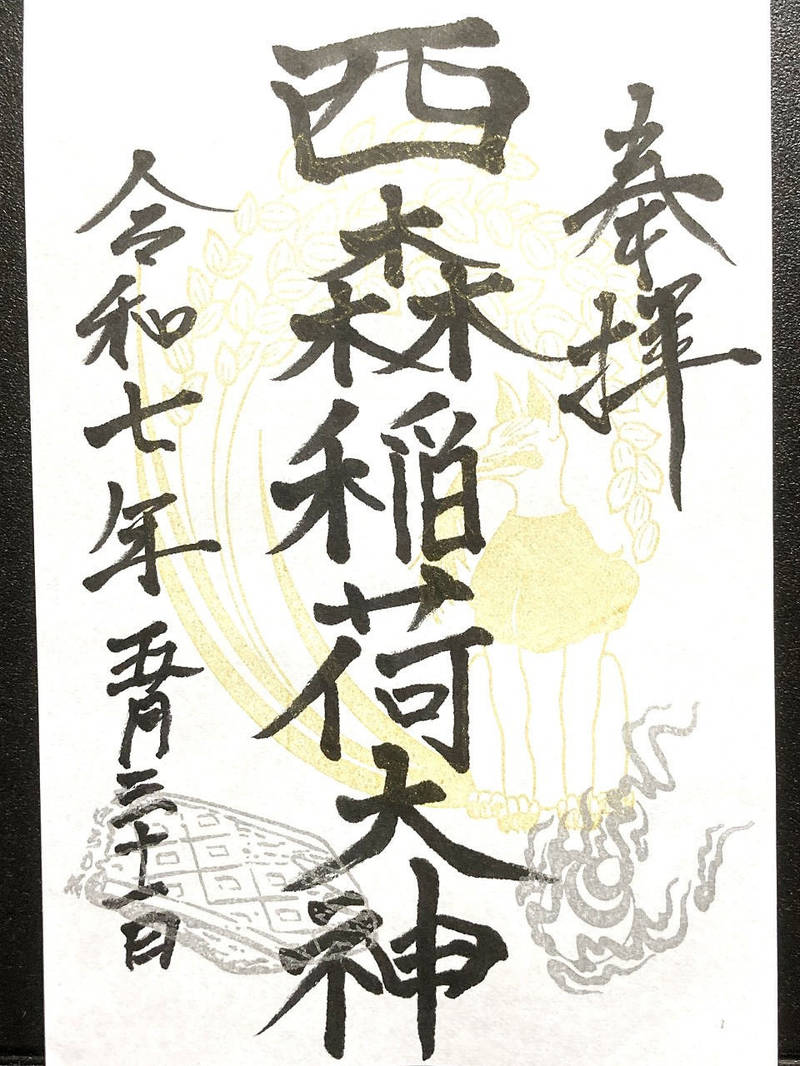 奉拝
西森稲荷大神
令和七年五月三十一日